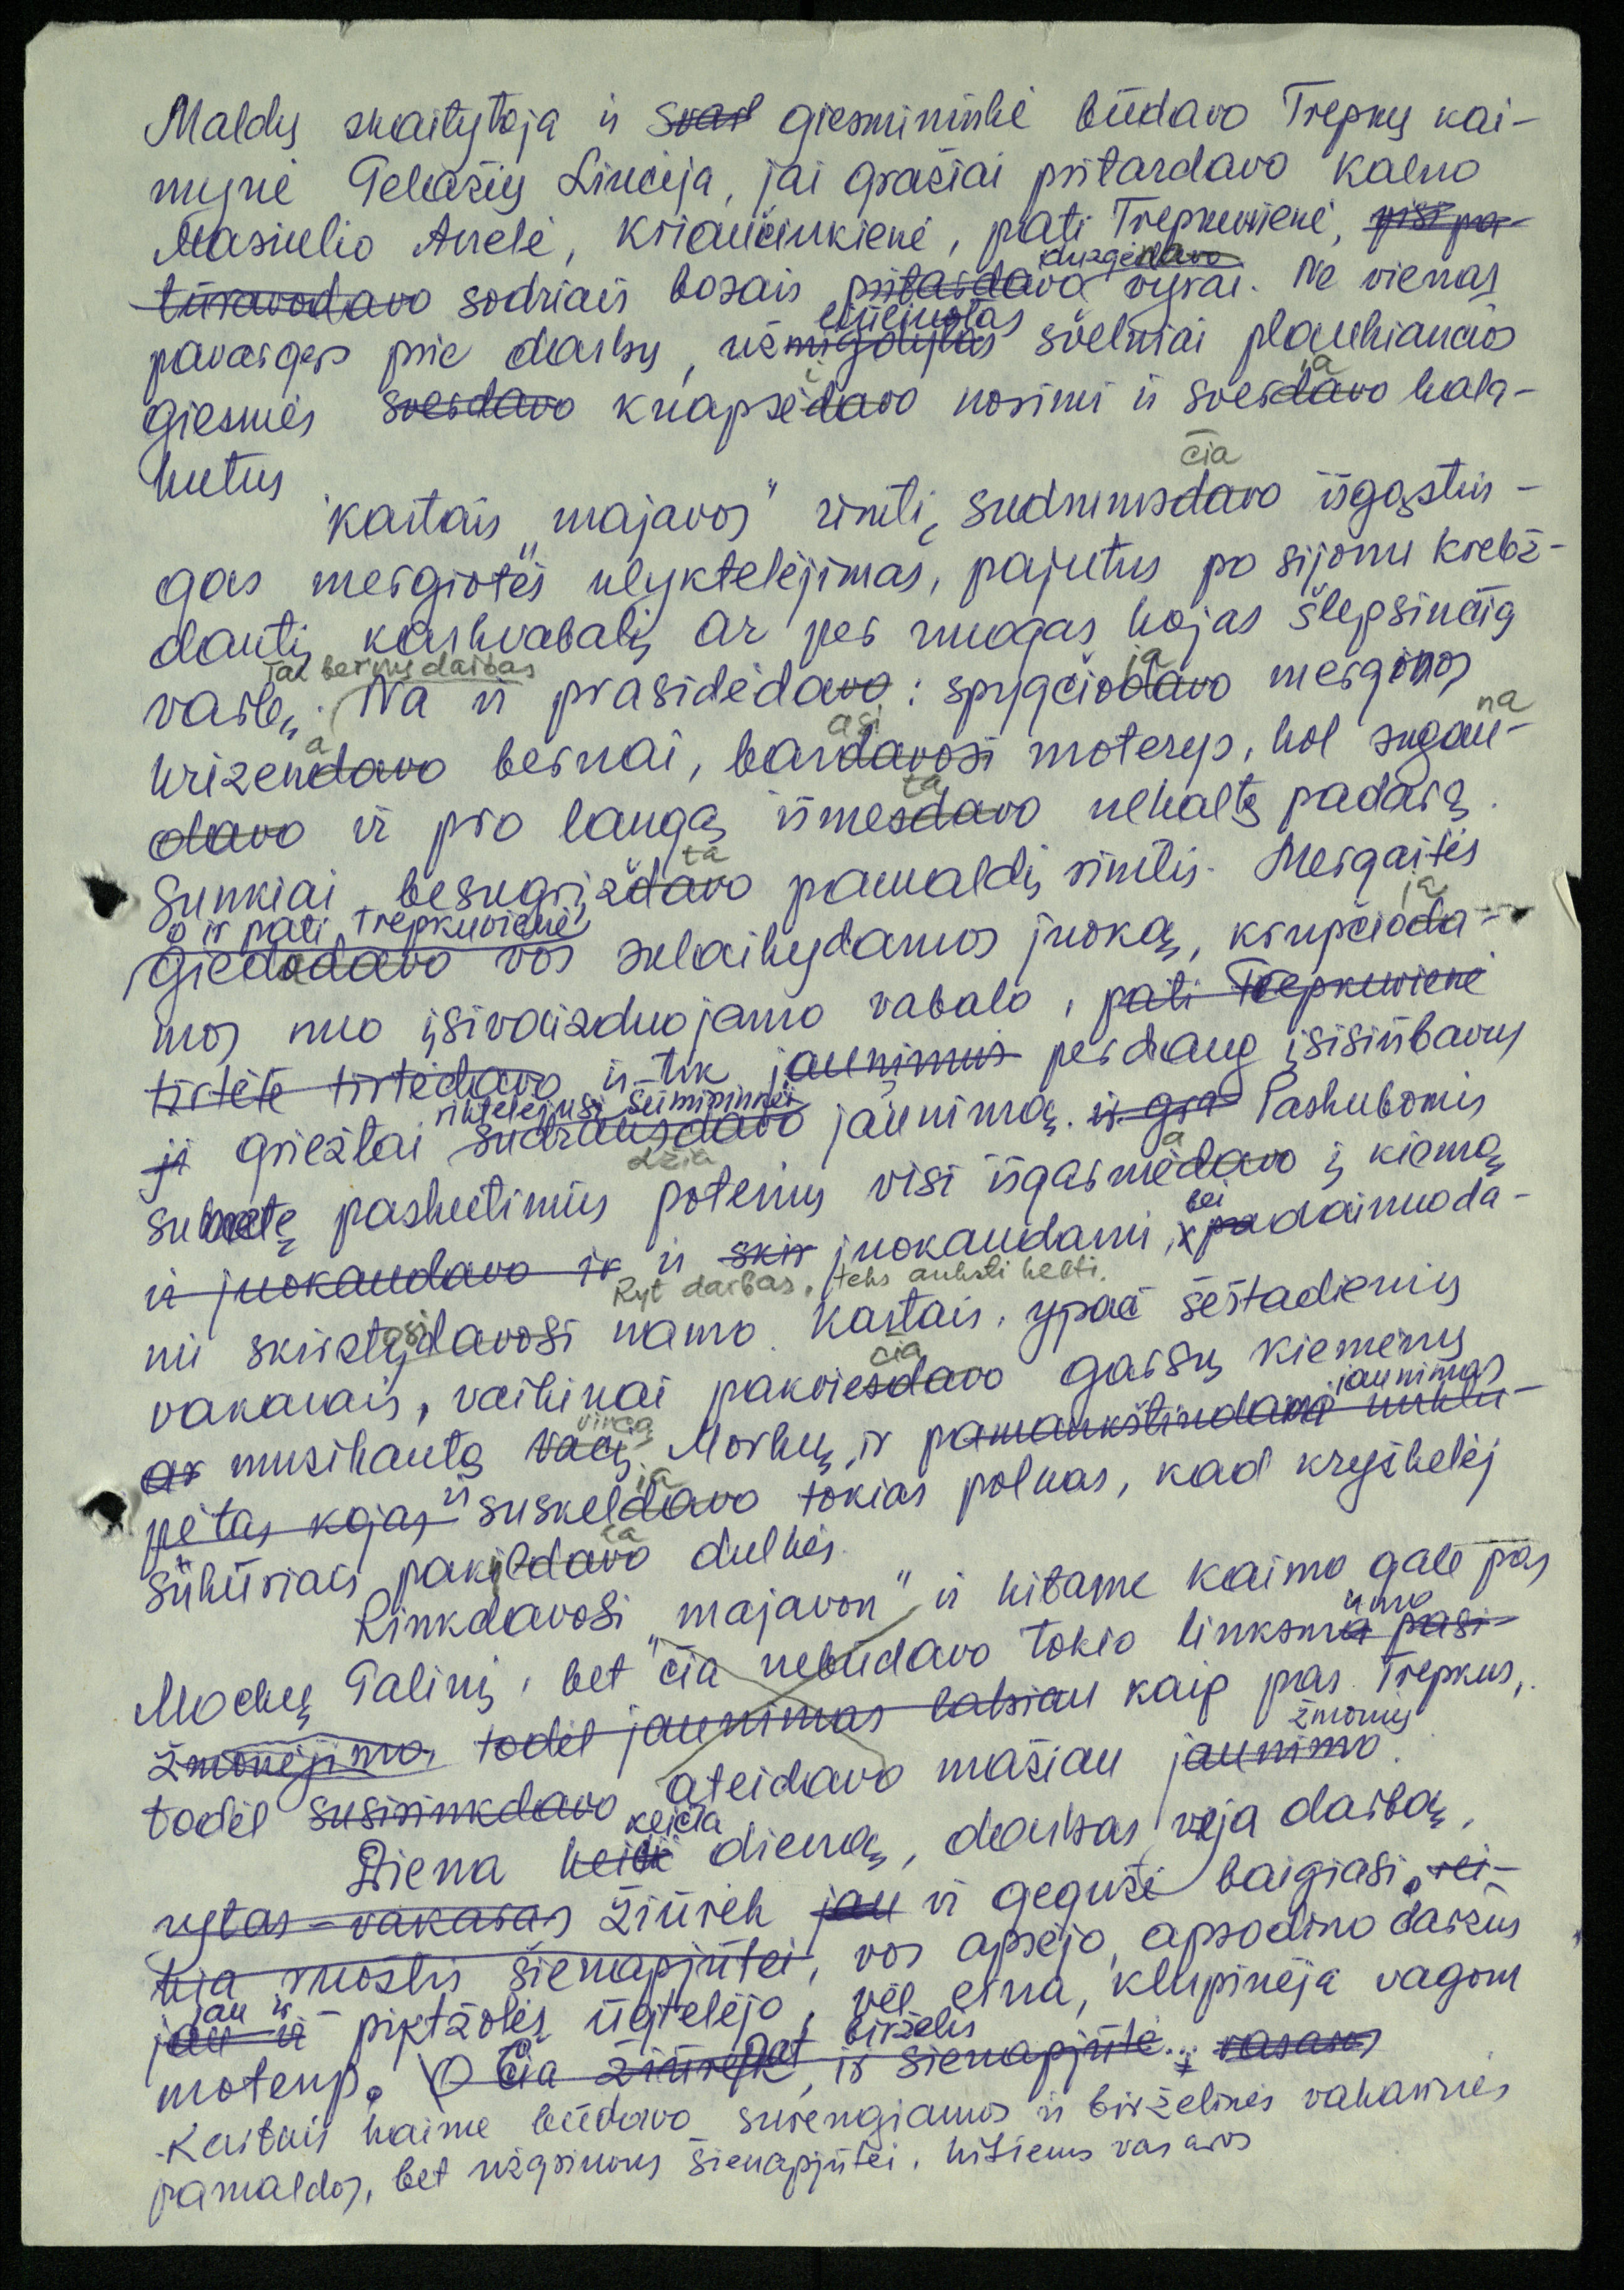 Maldų skaitytoja ir svar giesmininkė būdavo Trepkų kai-
mynė Gelažių Liucija, jai gražiai pritardavo Kalno
Masiulio Anelė, Kriaučiukienė, pati Trepkuvienė, visi pa-
tūravodavo sodriais bosais pritardavo duzgėdavo vyrai. Ne vienas
pavargęs prie darbų, užmigdytas švelniai plaukiančios
giesmės sverdavo knapsėdavo nosimi ir sverdavo kala-
kutus
Kartais „majavos" rimtį sudrumsdavo čia išgąstin-
gas mergiotės klyktelėjimas, pajutus po sijonu krebž-
dantį karkvabalį ar per nuogas kojas šlepsinčią
varlę. Tai bernų darbas Na ir prasidėdavo: spygčiodavo ia merginos
krizendavo a bernai, bardavosi asi moterys, kol sugau- na
davo ir pro langą išmesdavo ta nekaltą padarą.
Sunkiai besugrįždavo ta pamaldi rimtis. Mergaitės
o ir pati Trepkuvienė
giedodavo vos sulaikydamos juoką, krupčioda- ia
mos nuo įsivaizduojamo vabalo, pati Trepkuvienė
tirtėte tirtėdavo ir tik jaunimui perdaug įsisiūbavus
ji griežtai riktelėjusi šeimininkė sudrausdavo džia jaunimą. ir gra Paskubomis
sumetę paskutinius poterius visi išgarmėdavo a į kiemą
ir juokaudavo ir ir skir juokaudami, bei padainuoda-
mi skirstydavosi osi namo. Ryt darbas, teks anksti keltі. Kartais, ypač šeštadienių
vakarais, vaikinai pakviesdavo čia garsų kiemenų
ar muzikantą Vacį Morkų ir pamankštindami jaunimas nuklu-
pėtas kojas ir suskeldavo ia tokias polkas, kad kryžkelėj
sūkūriais pakildavo la dulkės.
Rinkdavosi „majavon" ir kitame kaimo gale pas
Mockų Galinį, bet čia nebūdavo tokio linksma umo pasi-
žmonėjimo, todėl jaunimas labiau kaip pas Trepkus,
todėl susirinkdavo ateidavo mažiau jaunimo žmonių.
Diena keitė keičia dieną, darbas veja darbą,
rytas-vakaras žiūrėk jau ir gegužė baigiasi, rei-
kia ruoštis šienapjūtei, vos apsėjo, apsodino daržus
jau ir jau ir piktžolės ūgtelėjo, vėl eina, klupinėja vagom
moterys. O čia žiūrėk pat birželis, ir šienapjūtė... vasaros
Kartais kaime būdavo surengiamos ir birželinės vakarinės
pamaldos, bet užgriuvus šienapjūtei, kitiems vasaros